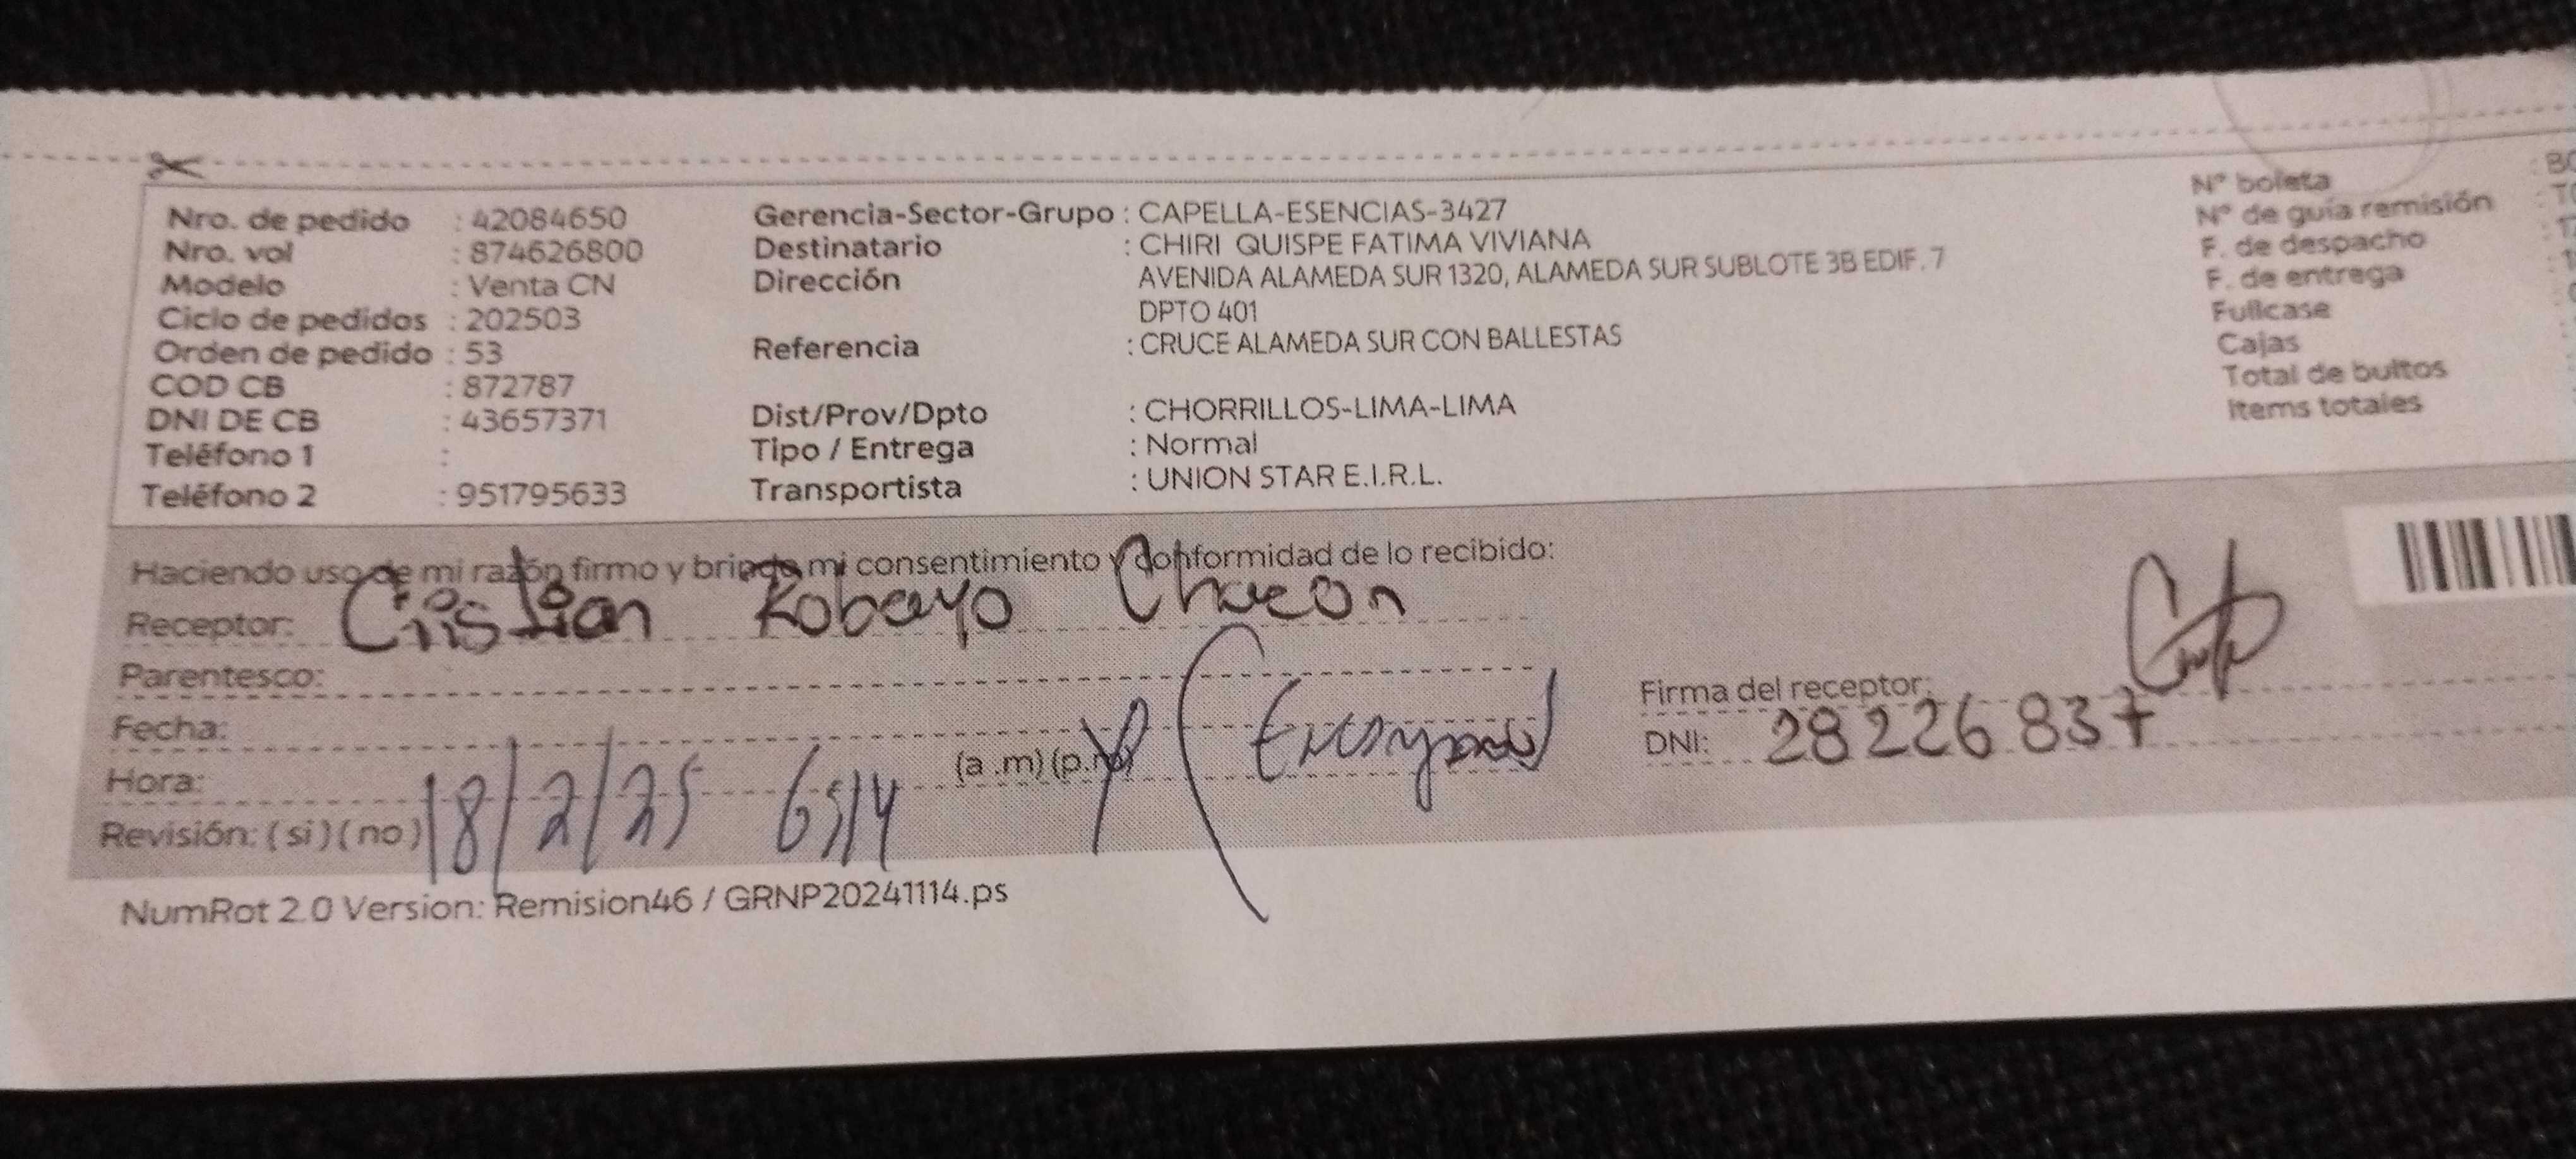 Nro. de pedido : 42084650
Nro. vol : 874626800
Modelo : Venta CN
Ciclo de pedidos : 202503
Orden de pedido : 53
COD CB : 872787
DNI DE CB : 43657371
Teléfono 1 :
Teléfono 2 : 951795633
Gerencia-Sector-Grupo : CAPELLA-ESENCIAS-3427
Destinatario : CHIRI QUISPE FATIMA VIVIANA
Dirección AVENIDA ALAMEDA SUR 1320, ALAMEDA SUR SUBLOTE 3B EDIF. 7
DPTO 401
Referencia : CRUCE ALAMEDA SUR CON BALLESTAS
Dist/Prov/Dpto : CHORRILLOS-LIMA-LIMA
Tipo / Entrega : Normal
Transportista : UNION STAR E.I.R.L.
N° boleta
N° de guía remisión
F. de despacho
F. de entrega
Fullcase
Cajas
Total de bultos
Items totales
Haciendo uso de mi razón firmo y brindo mi consentimiento y conformidad de lo recibido:
Receptor: Cristian Robayo Chacon
Parentesco:
Fecha:
Hora: (a .m) (p.m)
Revisión: ( si ) ( no ) 18/2/25
Firma del receptor:
DNI: 28226837
NumRot 2.0 Version: Remision46 / GRNP20241114.ps